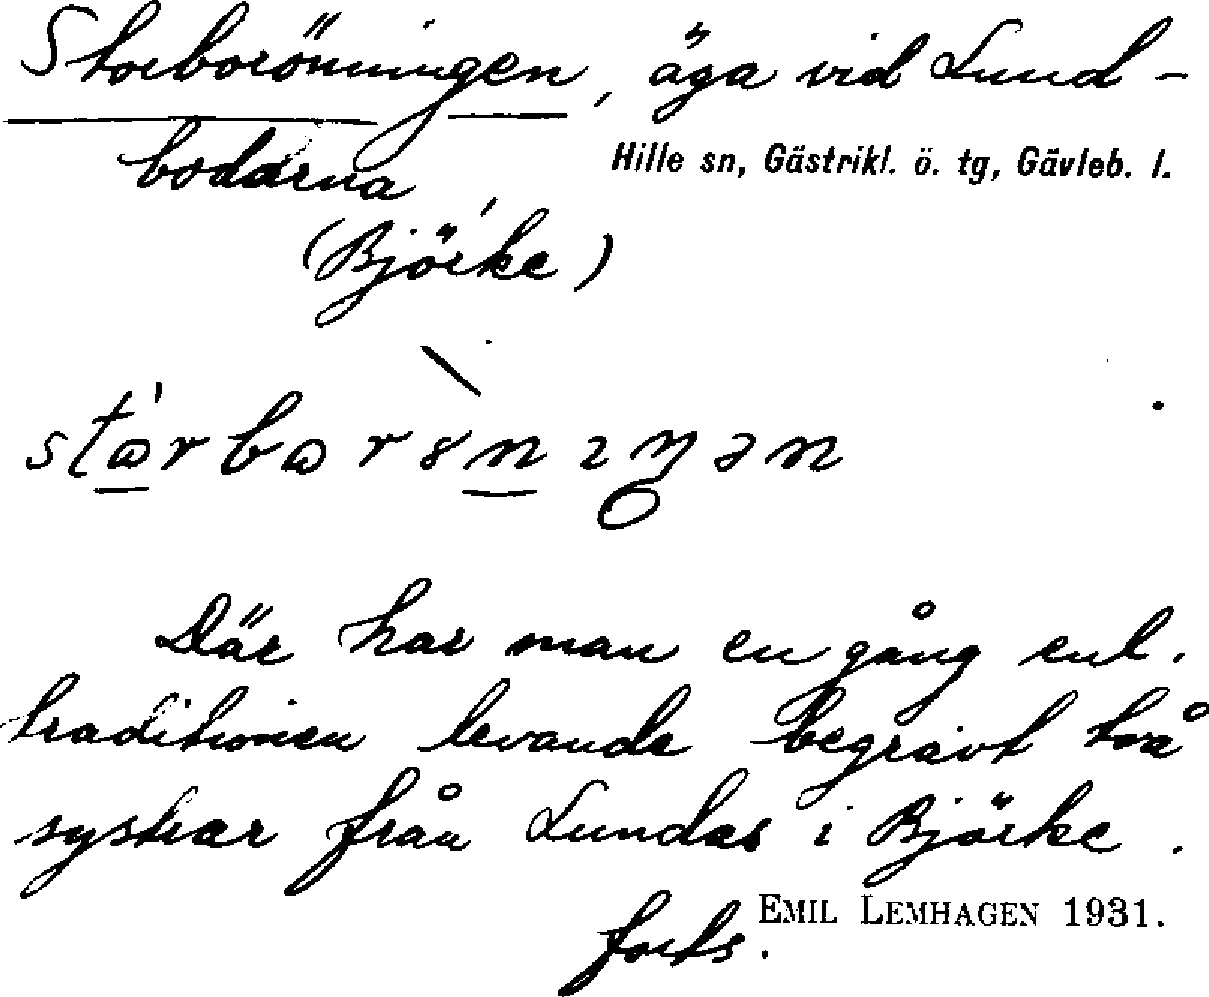 Storborönningen, äga vid Lund-
bodarna
Hille sn, Gästrikl. ö. tg, Gävleb. l.
(Björke)
Där har man en gång enl.
traditionen levande begravt två
systrar från Lundas i Björke.
forts.
EMIL LEMHAGEN 1931.